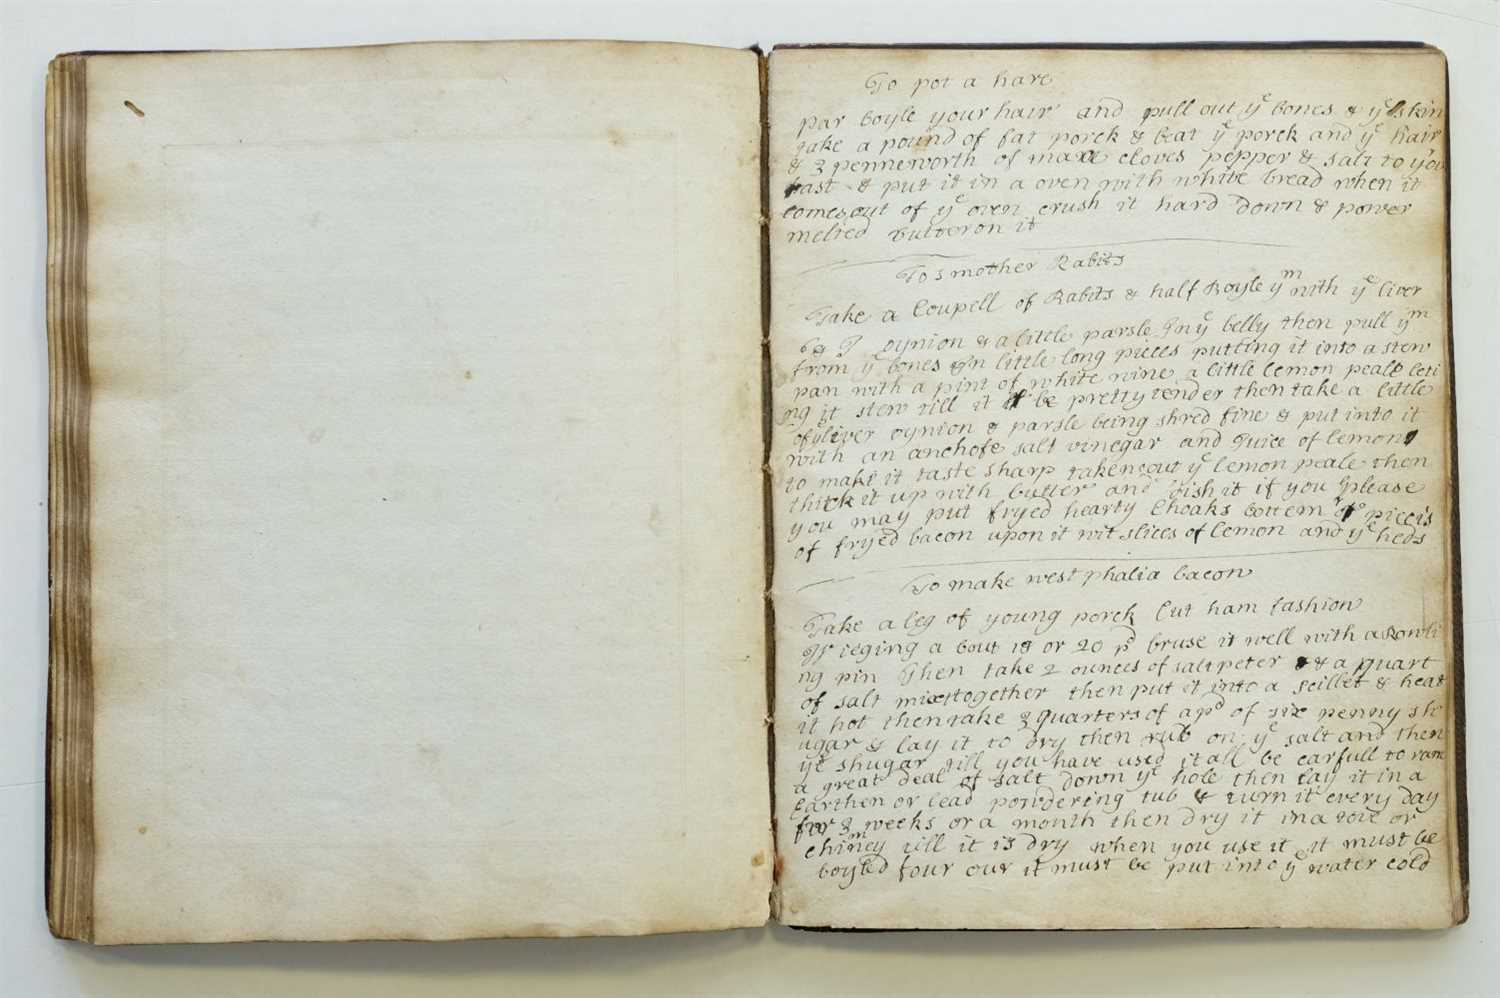 To pot a hare
par boyle your hair and pull out yᵉ bones & yᵉ skin
take a pound of fat porck & beat yᵉ porck and yᵉ hair
& 3 penneworth of mace cloves pepper & salt to your
tast & put it in a oven with white bread when it
comes out of yᵉ oven crush it hard down & power
melted butter on it
To smother Rabits
Take a Coupell of Rabits & half Boyle yᵐ with yᵉ liver
oynion & a little parsle In yᵉ belly then pull yᵐ
from yᵉ bones & In little long pieces putting it into a stew
pan with a pint of white wine a little lemon peale leti
ng it stew till it be pretty tender then take a little
of yᵉ liver oynion & parsle being shred fine & put into it
with an anchofe salt vinegar and Juice of lemon
to make it taste sharp takeing out yᵉ lemon peale then
thick it up with butter and dish it if you please
you may put fryed hearty Choaks bottem or pieces
of fryed bacon upon it wit slices of lemon and yᵉ heds
To make west phalia bacon
Take a leg of young porck Cut ham fashion
Wieging a bout 18 or 20 pᵈ bruse it well with a Rowli
ng pin Then take 2 ounces of saltpeter & a quart
of salt mixt together then put it into a scillet & heat
it hot then take 3 quarters of a pᵈ of six penny sh
ugar & lay it to dry then rub on yᵉ salt and then
yᵉ shugar till you have used it all be carfull to ram
a great deal of salt down yᵉ hole then lay it in a
Earthen or lead powdering tub & turn it every day
for 3 weeks or a month then dry it in a tove or
chimney till it is dry when you use it it must be
boyled four our it must be put into yᵉ water cold